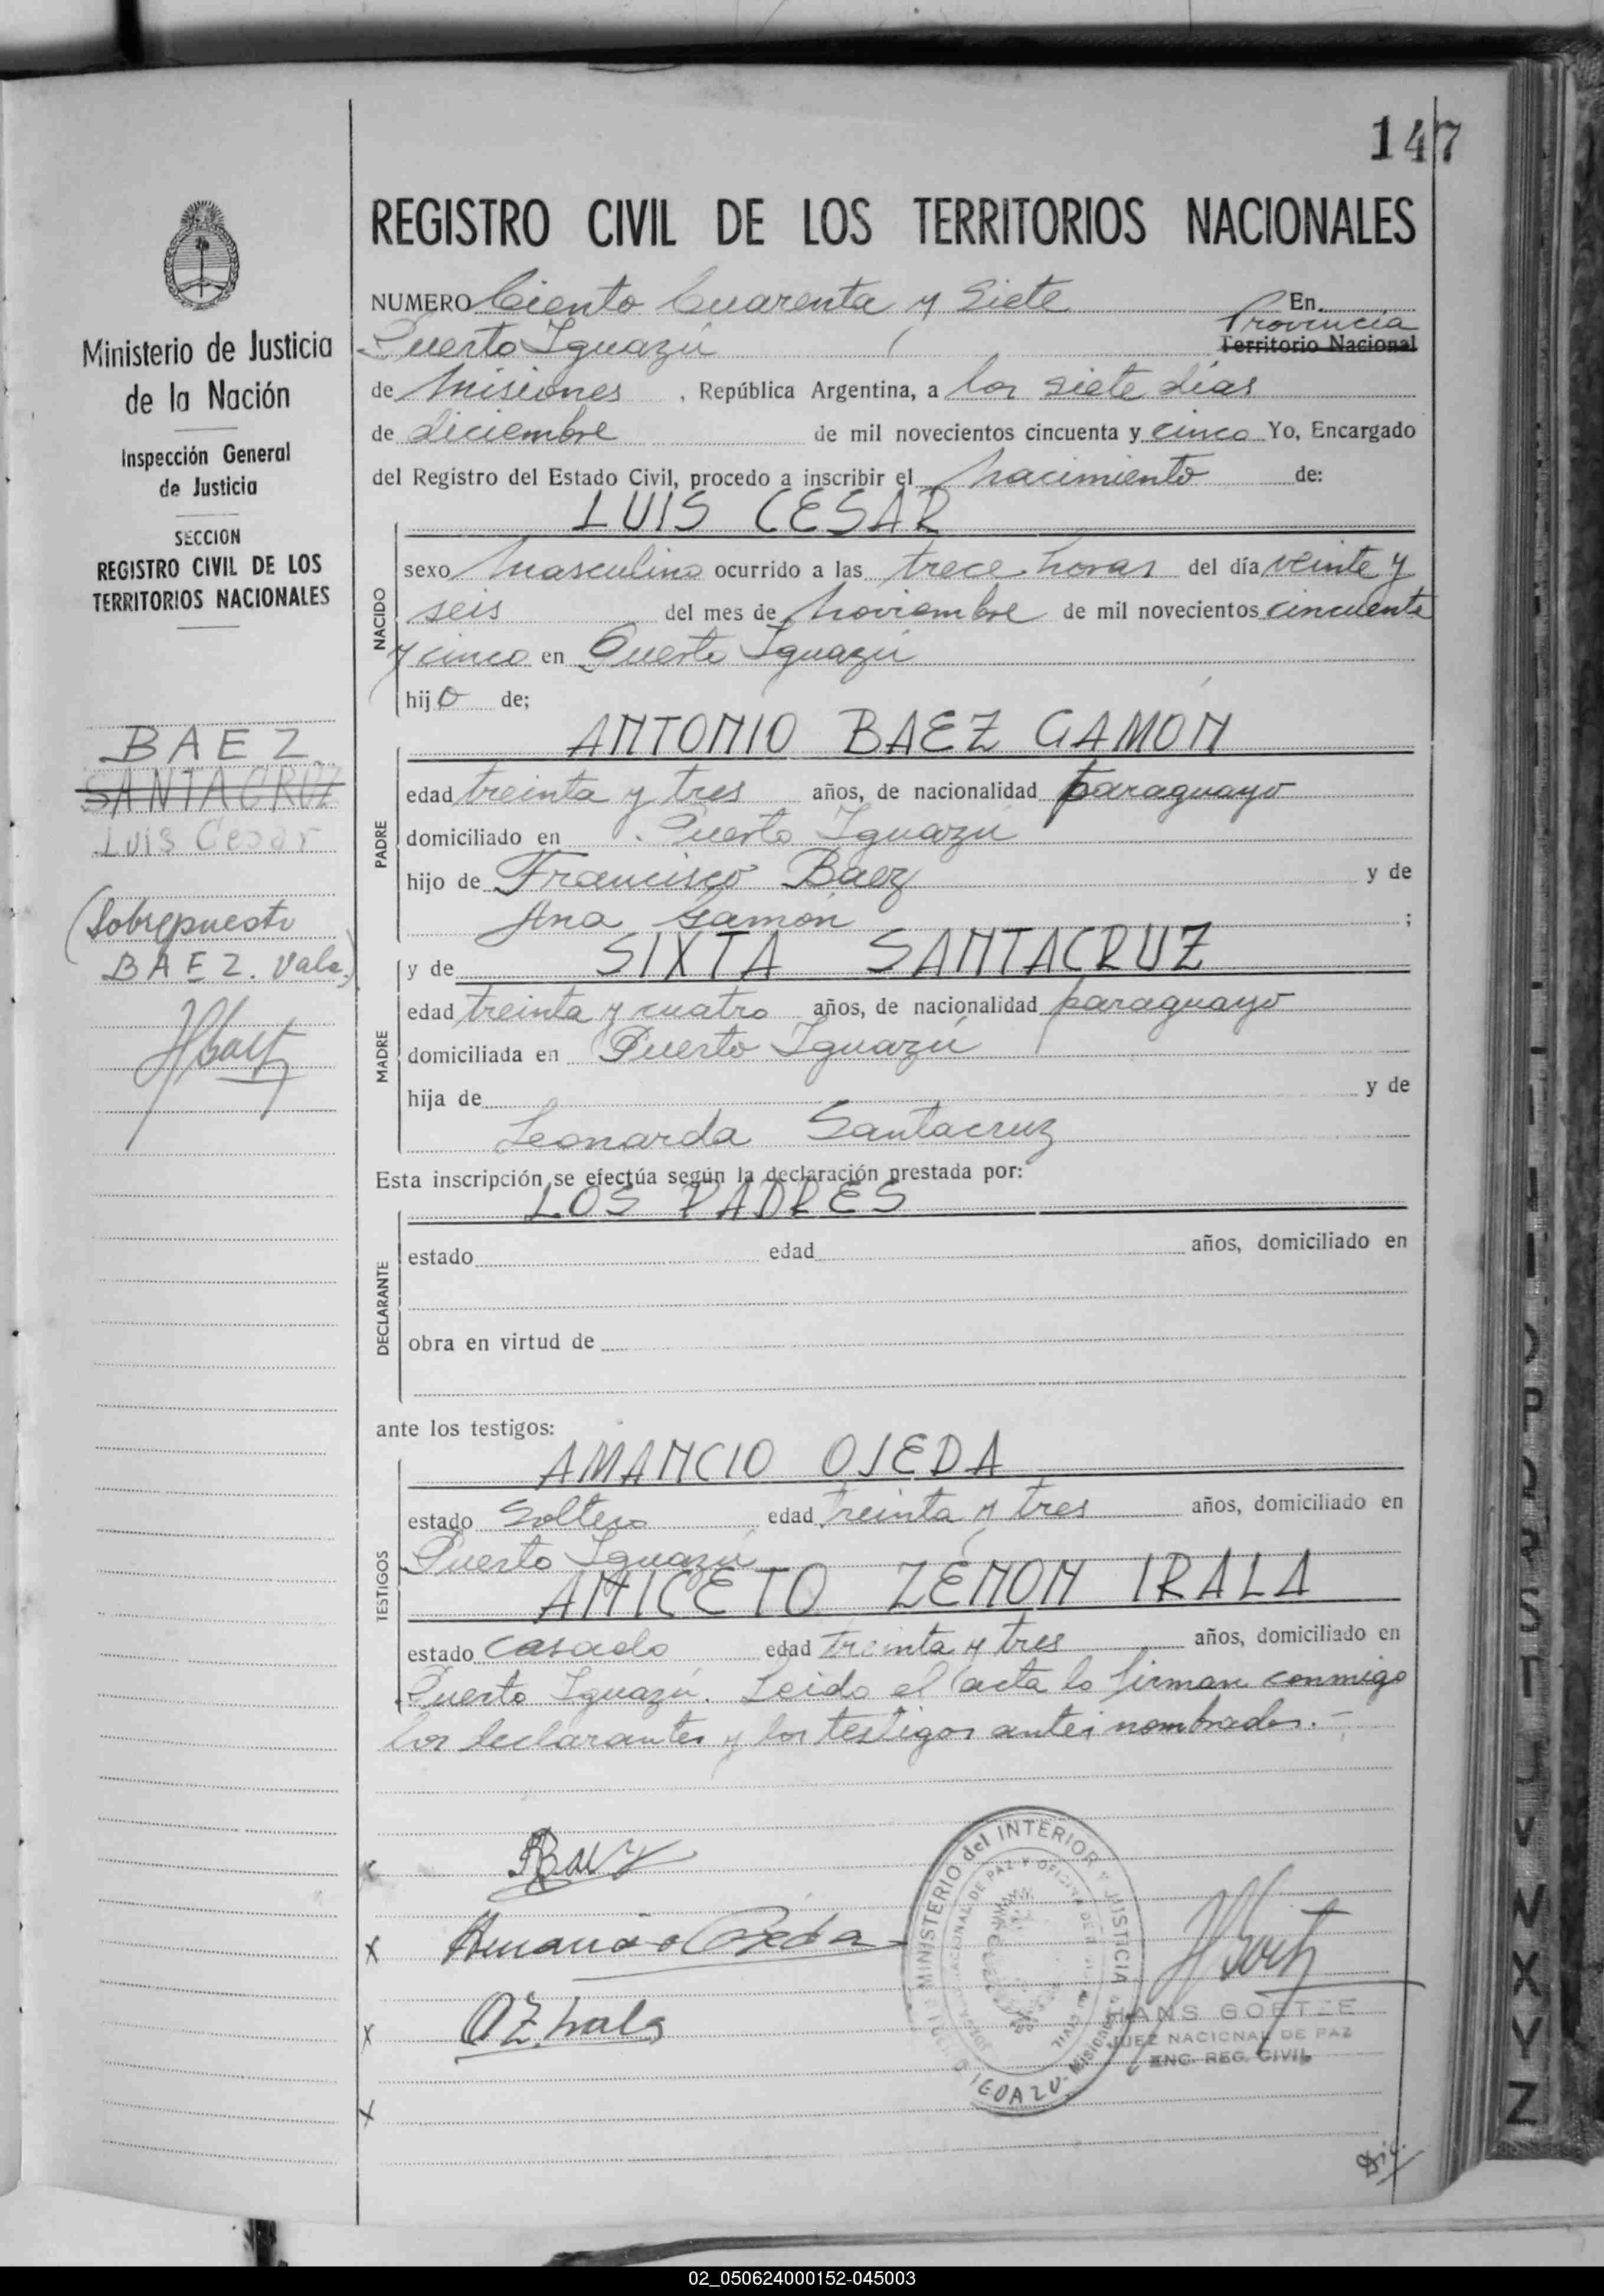 147
REGISTRO CIVIL DE LOS TERRITORIOS NACIONALES
Ministerio de Justicia
de la Nación
Inspección General
de Justicia
SECCION
REGISTRO CIVIL DE LOS
TERRITORIOS NACIONALES
BAEZ
SANTACRUZ
Luis Cesar
(Sobrepuesto
BAEZ. Vale.)
NUMERO Ciento Cuarenta y Siete En
Puerto Iguazú Provincia
Territorio Nacional
de Misiones, República Argentina, a los siete días
de diciembre de mil novecientos cincuenta y cinco Yo, Encargado
del Registro del Estado Civil, procedo a inscribir el nacimiento de:
LUIS CESAR
NACIDO
sexo masculino ocurrido a las trece horas del día veinte y
seis del mes de noviembre de mil novecientos cincuenta
y cinco en Puerto Iguazú
hijo de;
ANTONIO BAEZ GAMON
PADRE
edad treinta y tres años, de nacionalidad paraguayo
domiciliado en Puerto Iguazú
hijo de Francisco Baez y de
Ana Gamón ;
y de SIXTA SANTACRUZ
MADRE
edad treinta y cuatro años, de nacionalidad paraguayo
domiciliada en Puerto Iguazú
hija de y de
Leonarda Santacruz
Esta inscripción se efectúa según la declaración prestada por:
LOS PADRES
DECLARANTE
estado edad años, domiciliado en
obra en virtud de
ante los testigos:
AMANCIO OJEDA
TESTIGOS
estado Soltero edad treinta y tres años, domiciliado en
Puerto Iguazú
ANICETO ZENON IRALA
estado Casado edad treinta y tres años, domiciliado en
Puerto Iguazú. Leido el acta lo firman conmigo
los declarantes y los testigos antes nombrados.-
x
Baez
x Amancio Ojeda
x AZ Irala
x
MINISTERIO del INTERIOR Y JUSTICIA
IGUAZU - Misiones
HANS GOETZE
JUEZ NACIONAL DE PAZ
ENC. REG. CIVIL
P
R
S
T
U
V
W
X
Y
Z
02_050624000152-045003